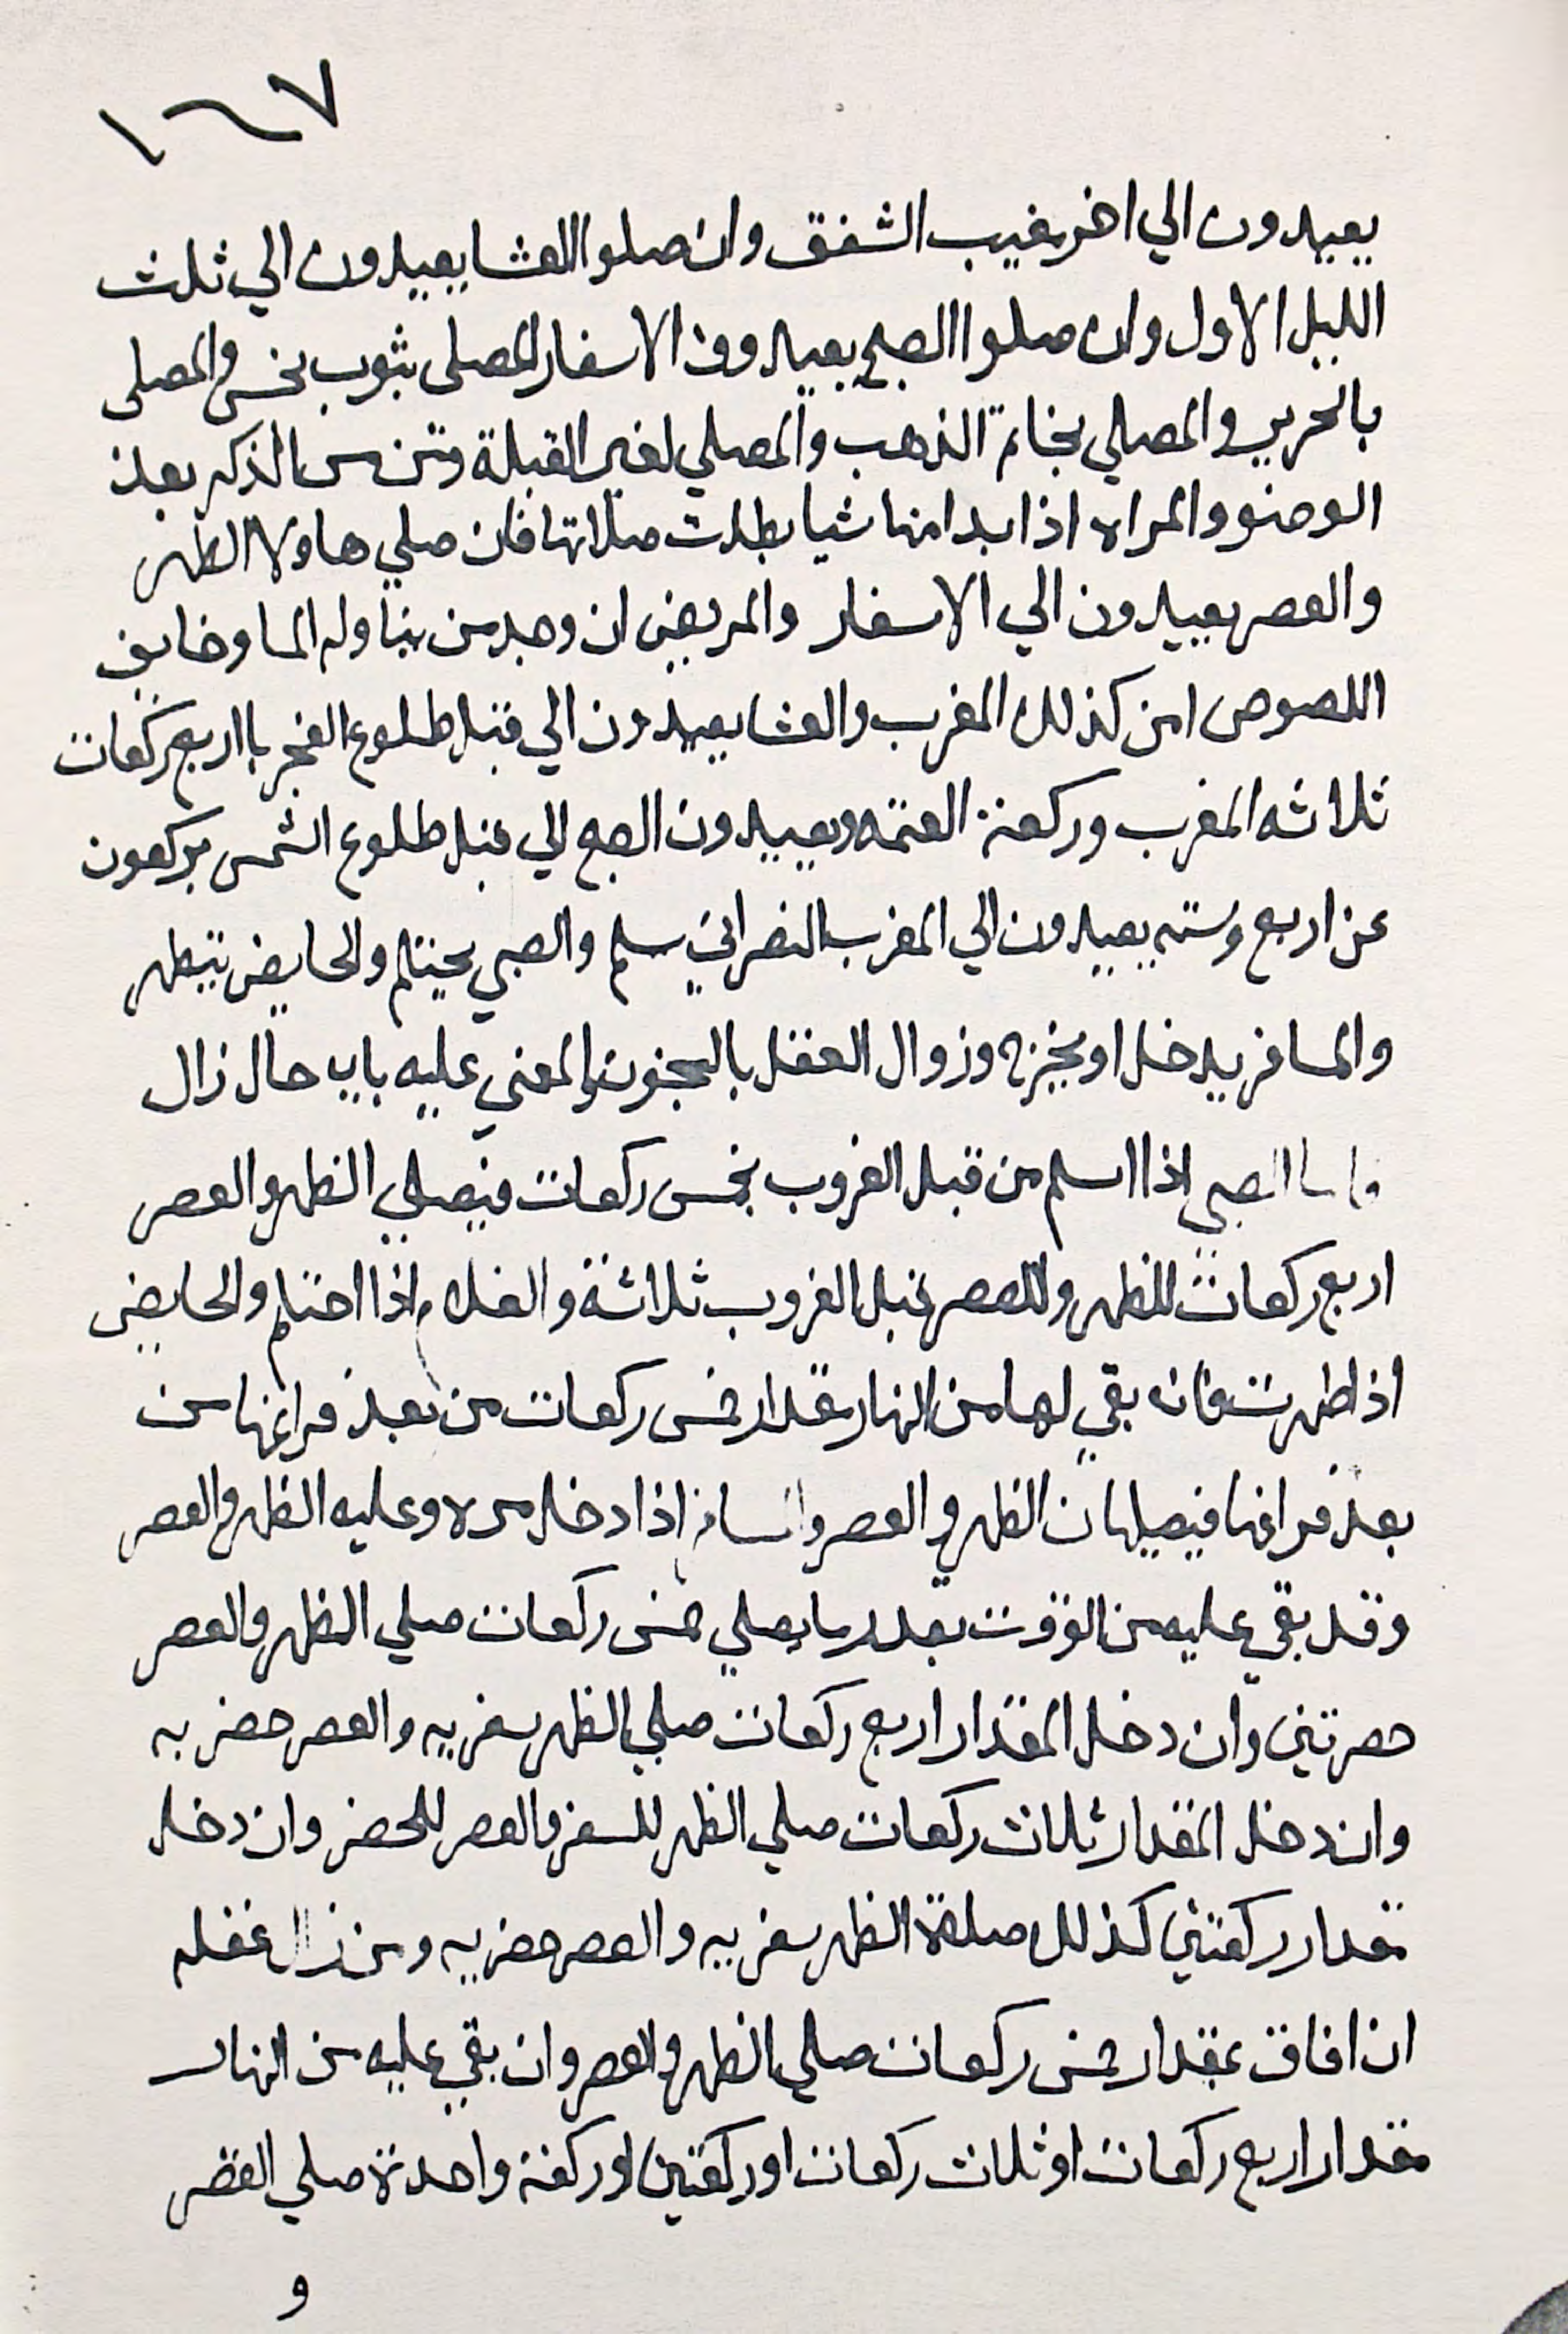 ١٦٧
يعيدون الي اخر مغيب الشفق وان صلوا العشا يعيدون الي ثلث
الليل الاول وان صلوا الصبح يعيدون الاسفار المصلى بثوب نجس والمصلى
بالحرير والمصلي بخاتم الذهب والمصلي لغير القبلة ومن مس الذكر بعد
الوضوو والمراه اذا بدا منها شيا بطلت صلاتها فان صلي هاولا الظهر
والعصر يعيدون الي الاسفار والمريض ان وجد من يناوله الما وخايف
اللصوص امن كذلك المغرب والعشا يعيدون الي قبل طلوع الفجر باربع ركعات
ثلاثه المغرب وركعة العتمه ويعيدون الصبح الي قبل طلوع الشمس بركعون
عن اربع وسته يعيدون الي المغرب النصراني يسلم والصبي يحتلم والحايض تتطهر
والمسافر يدخل او يخرج وزوال العقل بالجنون والمغمي عليه باي حال زال
الصبي اذا اسلم من قبل الغروب بخمس ركعات فيصلي الظهر والعصر
اربع ركعات للظهر وللعصر قبل الغروب ثلاثة والغلام اذا احتلم والحايض
اذا طهرت فان بقي لها من النهار مقدار خمس ركعات من بعد فراغها من
بعد فراغها فيصليان الظهر والعصر والمسافر اذا دخل وعليه الظهر والعصر
وقد بقي عليه من الوقت بقدر ما يصلي خمس ركعات صلي الظهر والعصر
حضرتين وان دخل المقدار اربع ركعات صلي الظهر سفريه والعصر حضريه
وان دخل المقدار ثلاث ركعات صلي الظهر للسفر والعصر للحضر وان دخل
مقدار ركعتين كذلك صلاة الظهر سفريه والعصر حضريه ومن زال عقله
ان افاق بمقدار خمس ركعات صلي الظهر والعصر وان بقي عليه من النهار
مقدار اربع ركعات او ثلاث ركعات او ركعتين او ركعة واحدة صلي العصر
و